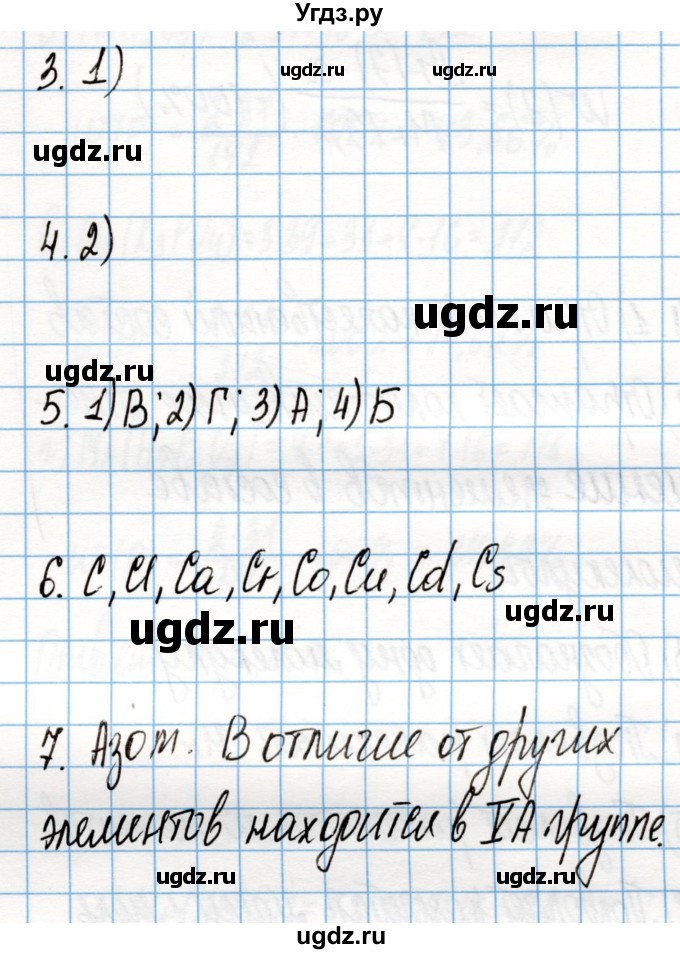 Угдз.ру
3. 1)
ugdz.ru ugdz.ru
ugdz.ru
4. 2)
ugdz.ru
ugdz.ru
5. 1) В; 2) Г; 3) А; 4) Б
6. C, Cl, Ca, Cr, Co, Cu, Cd, Cs
ugdz.ru
ugdz.ru
7. Азот. В отличие от других
элементов находится в VA группе.
ugdz.ru ugdz.ru
ugdz.ru